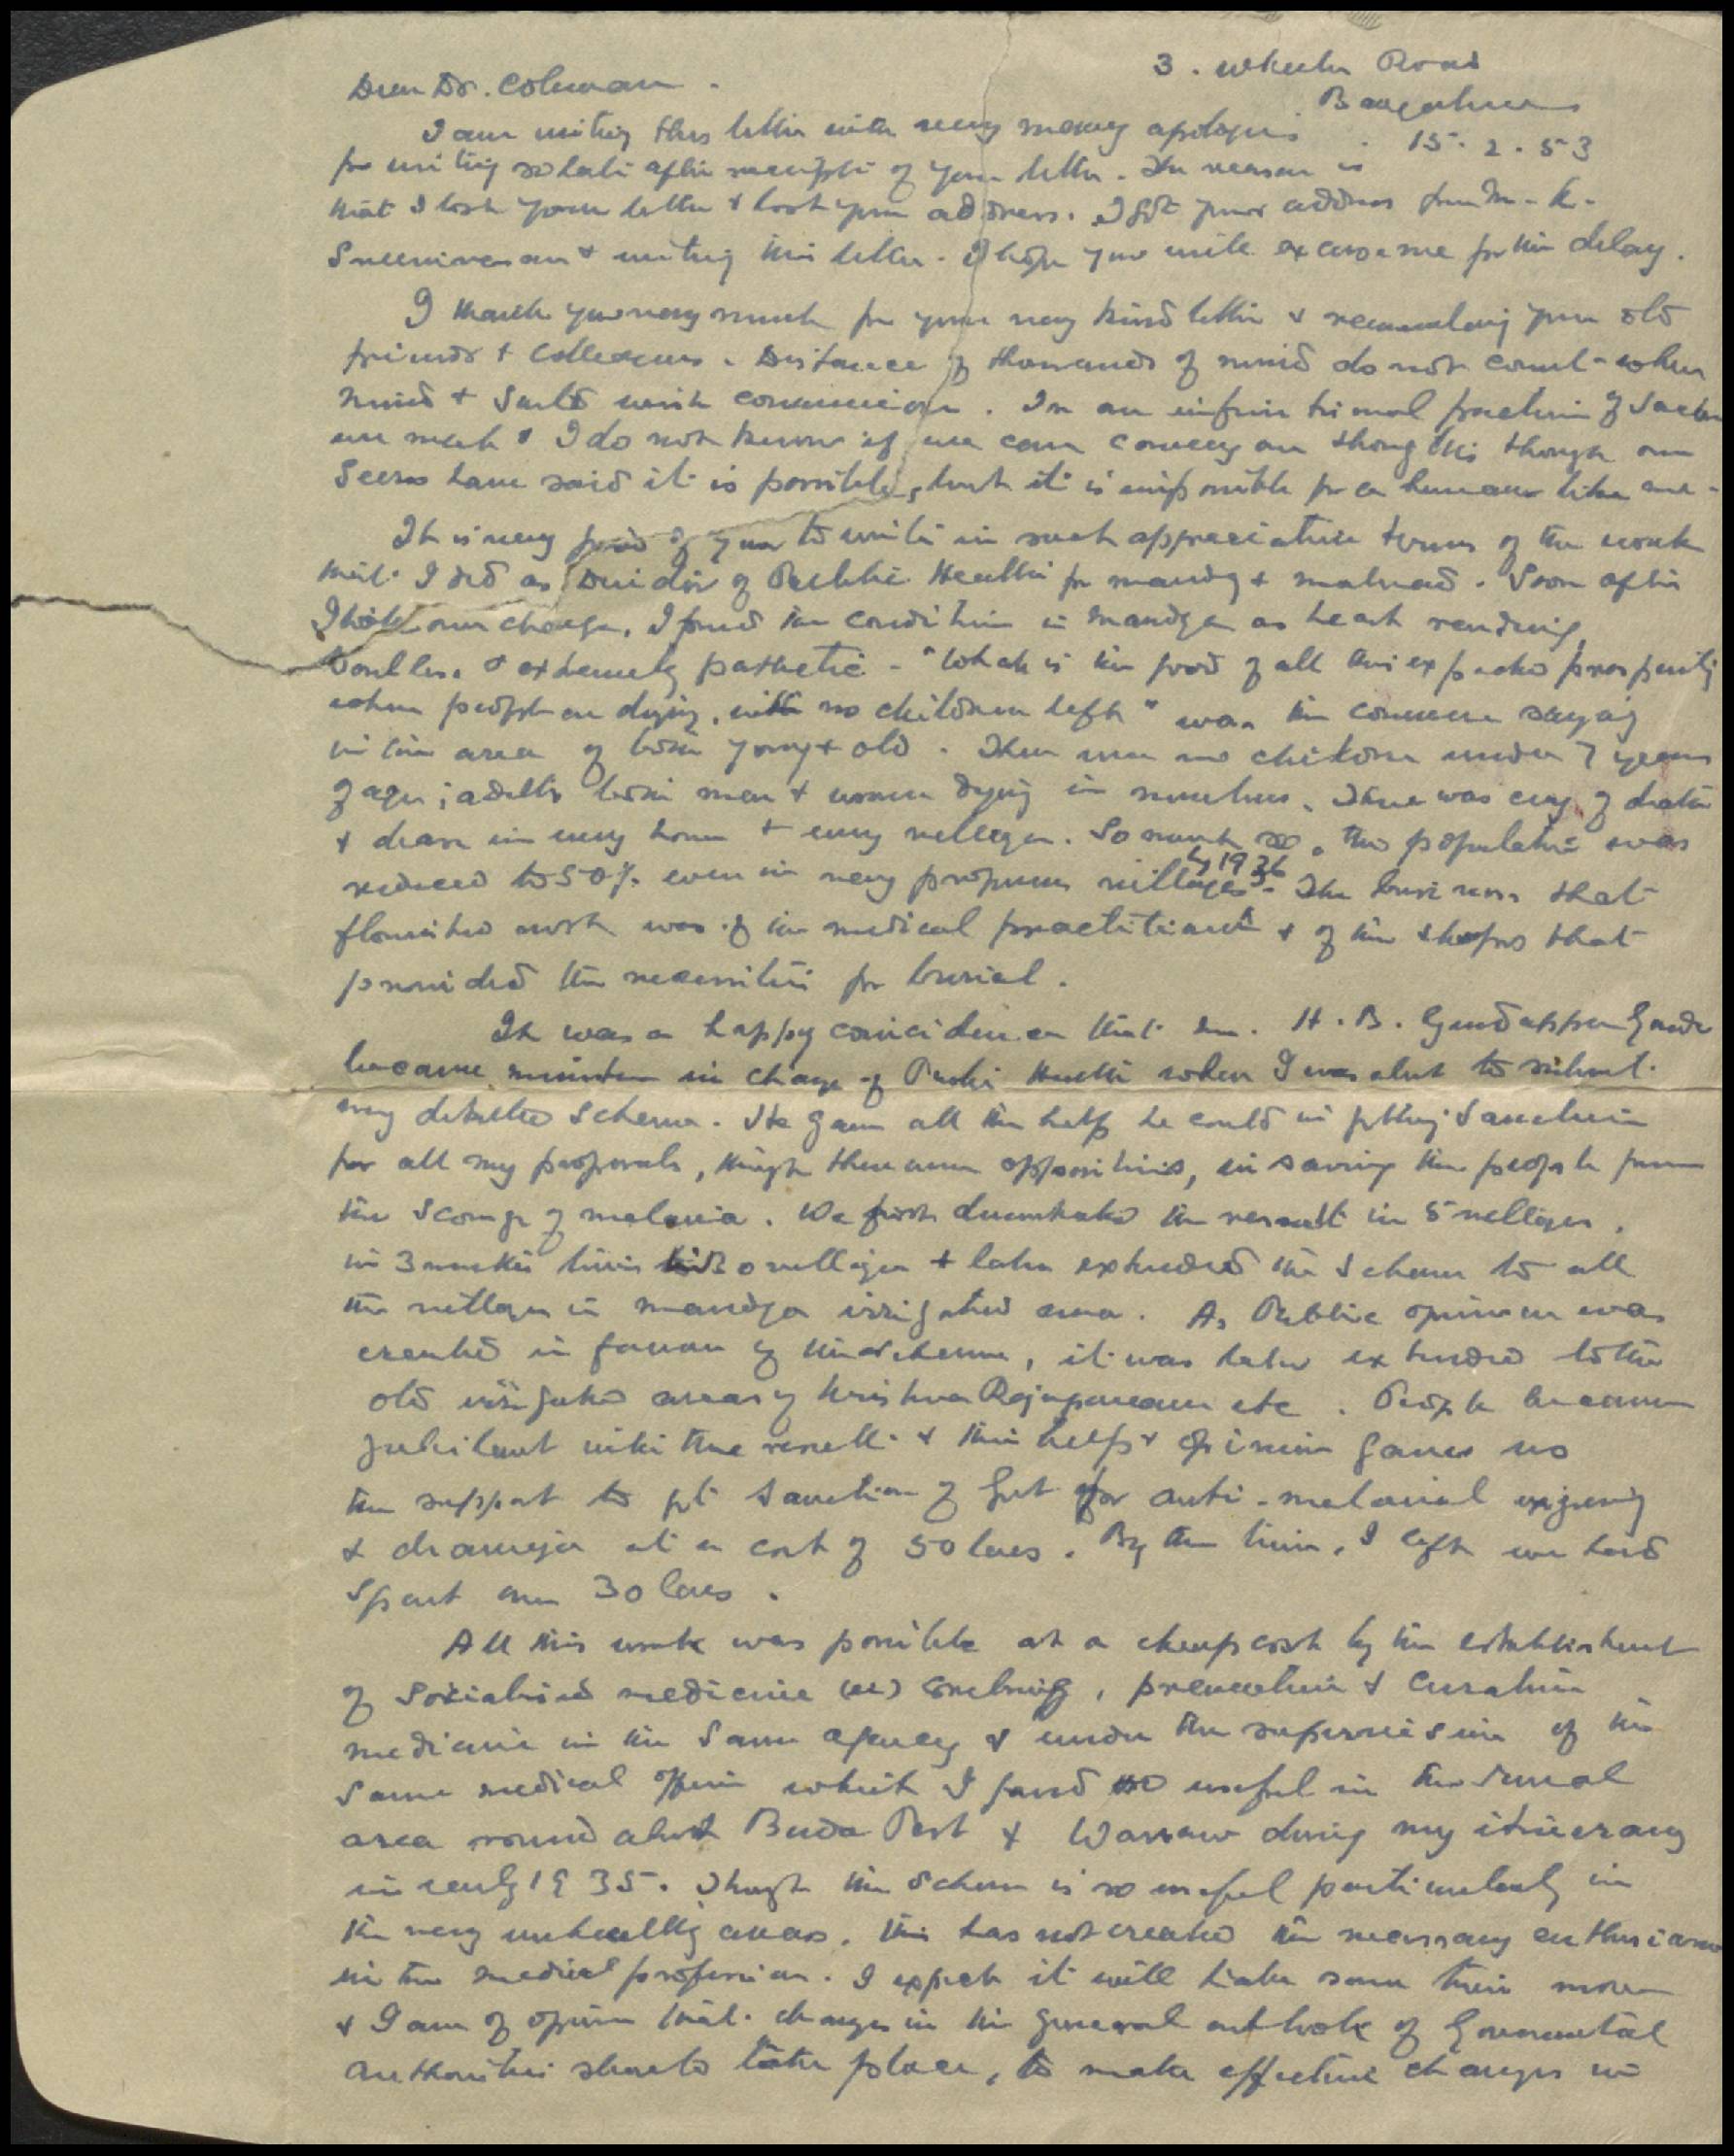 3. Wheeler Road
Bangalore
15.2.53
Dear Dr. Coleman.
I am writing this letter with very many apologies
for writing so late after receipt of your letter. The reason is
that I lost your letter & lost your address. I got your address from M. K.
Sreenivasan & writing this letter. I hope you will excuse me for this delay.
I thank you very much for your very kind letter & remembering your old
friends & colleagues. Distance of thousands of do not count when
mind & wish. In an infinitesimal fraction of
we meet & I do not know if we can convey our thoughts though our
Seers have said it is possible, but it is impossible for a human like me.
It is very good of you to write in such appreciative terms of the work
that I did as Director of Public Health for Mandya & Malnad. Soon after
I took over charge, I found the condition in Mandya as heart rending,
& extremely pathetic. "What is the good of all this expected prosperity
when people are dying, with no children left" was the common saying
in this area of both young & old. There were no children under 7 years
of age; adults both men & women dying in numbers. There was cry of death
& in every home & every village. So much so, the population was
reduced to 50% even in very prosperous villages by 1936. The business that
flourished most was of the medical practitioners & of the shops that
provided the necessities for burial.
It was a happy coincidence that Mr. H. B. Gundappa Gowda
became minister in charge of Public Health when I was about to submit
my detailed scheme. He gave all the help he could in getting sanction
for all my proposals, though there were oppositions, in saving the people from
the scourge of malaria. We first demonstrated the result in 5 villages,
in 3 months time to 30 villages & later extended the scheme to all
the villages in Mandya irrigated area. As Public opinion was
created in favour of the scheme, it was later extended to the
old irrigated areas of Krishna Rajapuram etc. People became
jubilant with the result & their help & opinion gave us
the support to get sanction of Govt for anti-malarial engineering
& drainage at a cost of 50 lacs. By the time, I left we had
spent over 30 lacs.
All this work was possible at a cheap cost by the establishment
of Socialised medicine (ie) combining, preventive & curative
medicine in the same agency & under the supervision of the
same medical officer which I found so useful in the rural
area round about Buda Pest & Warsaw during my itinerary
in early 1935. Though the scheme is so useful particularly in
the very unhealthy areas, this has not created the necessary enthusiasm
in the medical profession. I expect it will take some time more
& I am of opinion that changes in the general outlook of Governmental
authorities should take place, to make effective changes in